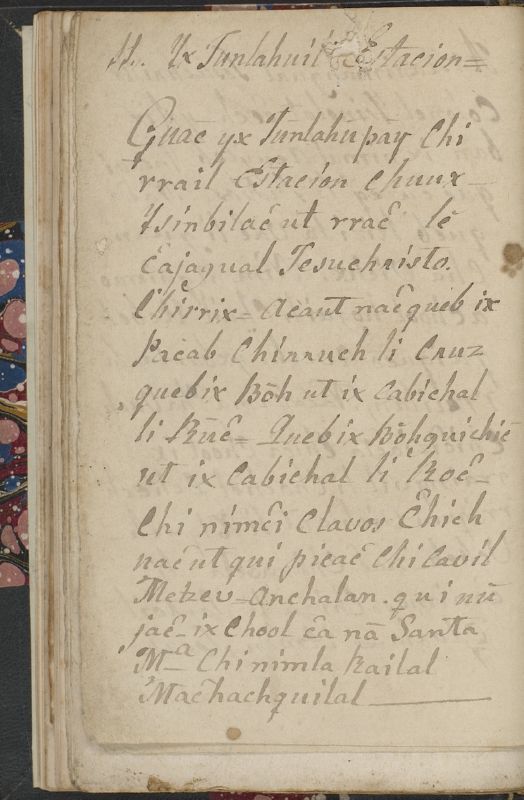 11. Yx Junlahuil Estacion=
Guac yx Junlahupay Chi
rrail Estacion Chuux
Ysinbilac ut rrac le
cajagual Jesuchristo.
Chirrix= Acaut nac queb ix
Pacab Chinruch li Cruz
quebix Boh ut ix Cabichal
li Rue= Quebix Bohquichic
ut ix Cabichal li Roc=
Chi nimci Clavos Chich
nac ut qui picac Chi Cavil
Metzev= Anchalan. qui nū
jac= ix Chool ca nā Santa
Mᵃ Chi nimla Railal
Machachquilal